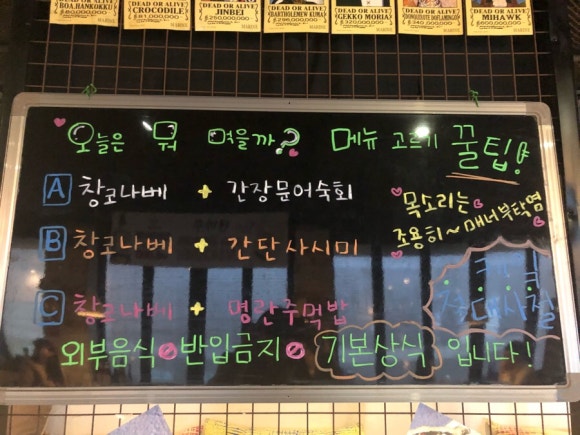 DEAD OR ALIVE
BOA.HANKOKKU
CROCODILE
DEAD OR ALIVE
JINBEI
DEAD OR ALIVE
BARTHOLEMEW KUMA
DEAD OR ALIVE
GEKKO MORIA
DEAD OR ALIVE
DONQUIXOTE DOFLAMINGO
DEAD OR ALIVE
MIHAWK
오늘은 뭐 먹을까? 메뉴 고르기 꿀팁!
A 창코나베 + 간장문어숙회
B 창코나베 + 간단사시미
C 창코나베 + 명란주먹밥
목소리는
조용히~매너부탁염
외부음식 반입금지 기본상식 입니다!